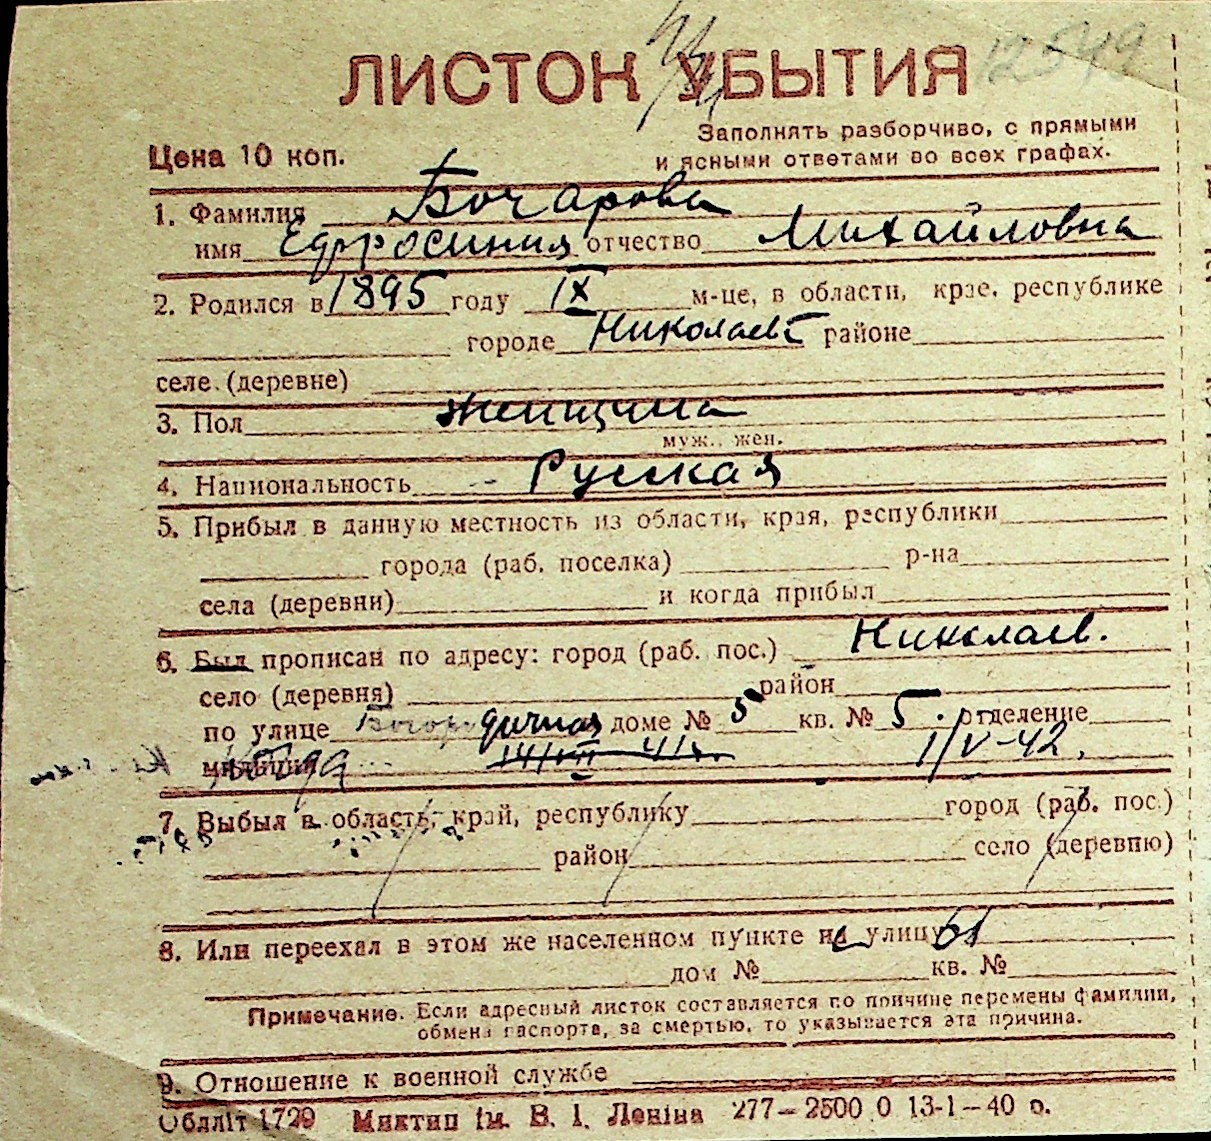 12549
ЛИСТОК УБЫТИЯ
Заполнять разборчиво, с прямыми
Цена 10 коп.
и ясными ответами во всех графах.
1. Фамилия Бочарова
имя Ефросиния отчество Михайловна
2. Родился в 1895 году IX м-це, в области, крае, республике
городе Николаев районе
селе (деревне)
3. Пол женщина
муж., жен.
4. Национальность Руская
5. Прибыл в данную местность из области, края, республики
города (раб. поселка) р-на
села (деревни) и когда прибыл
6. Был прописан по адресу: город (раб. пос.) Николаев.
село (деревня) район
по улице доме № 5 кв. № 5. отделение
милиции 1/V-42.
7. Выбыл в область, край, республику город (раб. пос.)
район село (деревню)
8. Или переехал в этом же населенном пункте на улицу
дом № кв. №
Примечание. Если адресный листок составляется по причине перемены фамилии,
обмена паспорта, за смертью, то указывается эта причина.
9. Отношение к военной службе
Обдліт 1729 Миктип ім. В. І. Леніна 277—2500 0 13-1—40 р.